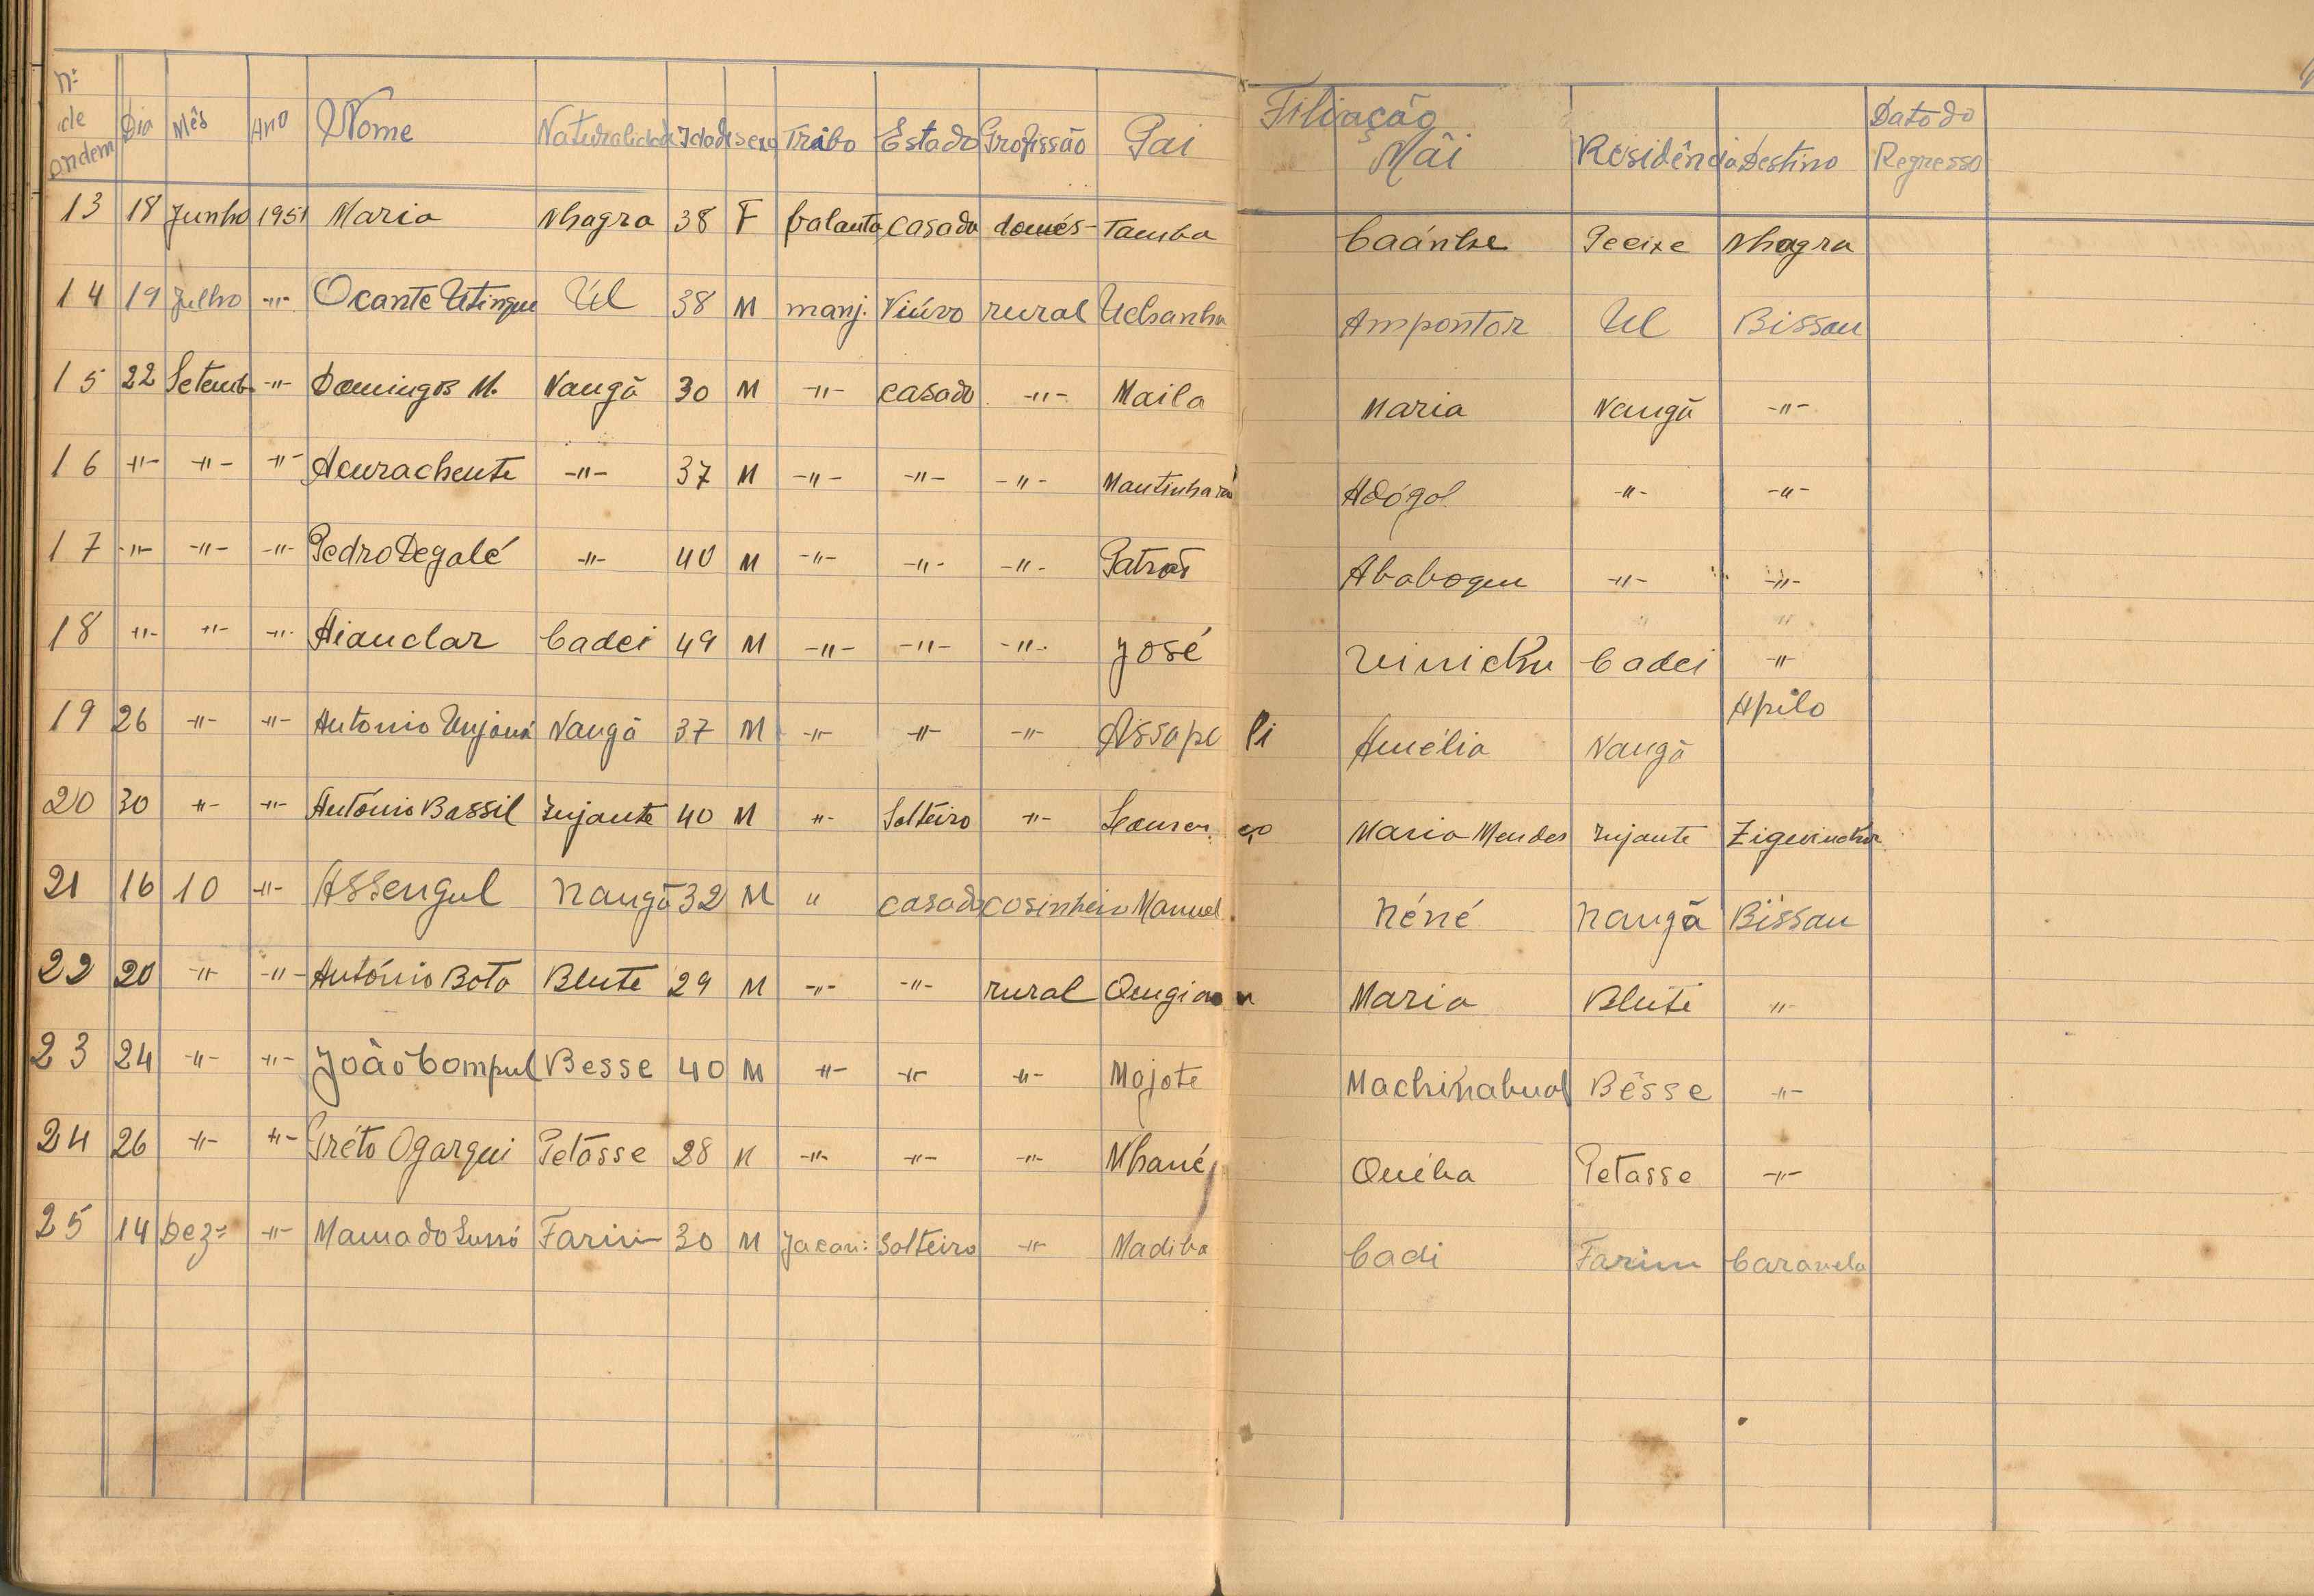 Nº de ordem Dia Mês Ano Nome Naturalidade Idade Sexo Tribo Estado Profissão Pai Filiação Mãi Residência Destino Data do Regresso
13 18 Junho 1951 Maria Nhagra 38 F balanta casada domés- Tamba Caántse Pecixe Nhagra
14 19 Julho -"- Ocante Utingue Úl 38 M manj. Viúvo rural Uchanha Ampontor Ul Bissau
15 22 Setemb. -"- Domingos M. Naugã 30 M -"- casado -"- Maila Maria Naugã -"-
16 -"- -"- -"- Acurachente -"- 37 M -"- -"- -"- Mantinhará Adógol -"- -"-
17 -"- -"- -"- Pedro Degalé -"- 40 M -"- -"- -"- Patrás Ababoque -"- -"-
18 -"- -"- -"- Aianclar Cadei 49 M -"- -"- -"- José Cadei -"-
19 26 -"- -"- Antonio Naugã 37 M -"- -"- -"- Assapeli Amélia Naugã Apilo
20 30 -"- -"- António Bassil Injante 40 M -"- Solteiro -"- Maria Mendes Injante Zigevinchor
21 16 10 -"- Assengul Naugã 32 M " casado cosinheiro Manuel Néné Naugã Bissau
22 20 -"- -"- António Bota Blute 29 M -"- -"- rural Maria Bluti "
23 24 -"- -"- João Compul Besse 40 M -"- -"- -"- Majote Machinabual Bêsse -"-
24 26 -"- -"- Préto Ogarqui Petasse 28 M -"- -"- -"- Nhané Québa Petasse -"-
25 14 Dez= -"- Mamado Farim 30 M Jacan: Solteiro -"- Madiba Cadi Farim Caravela